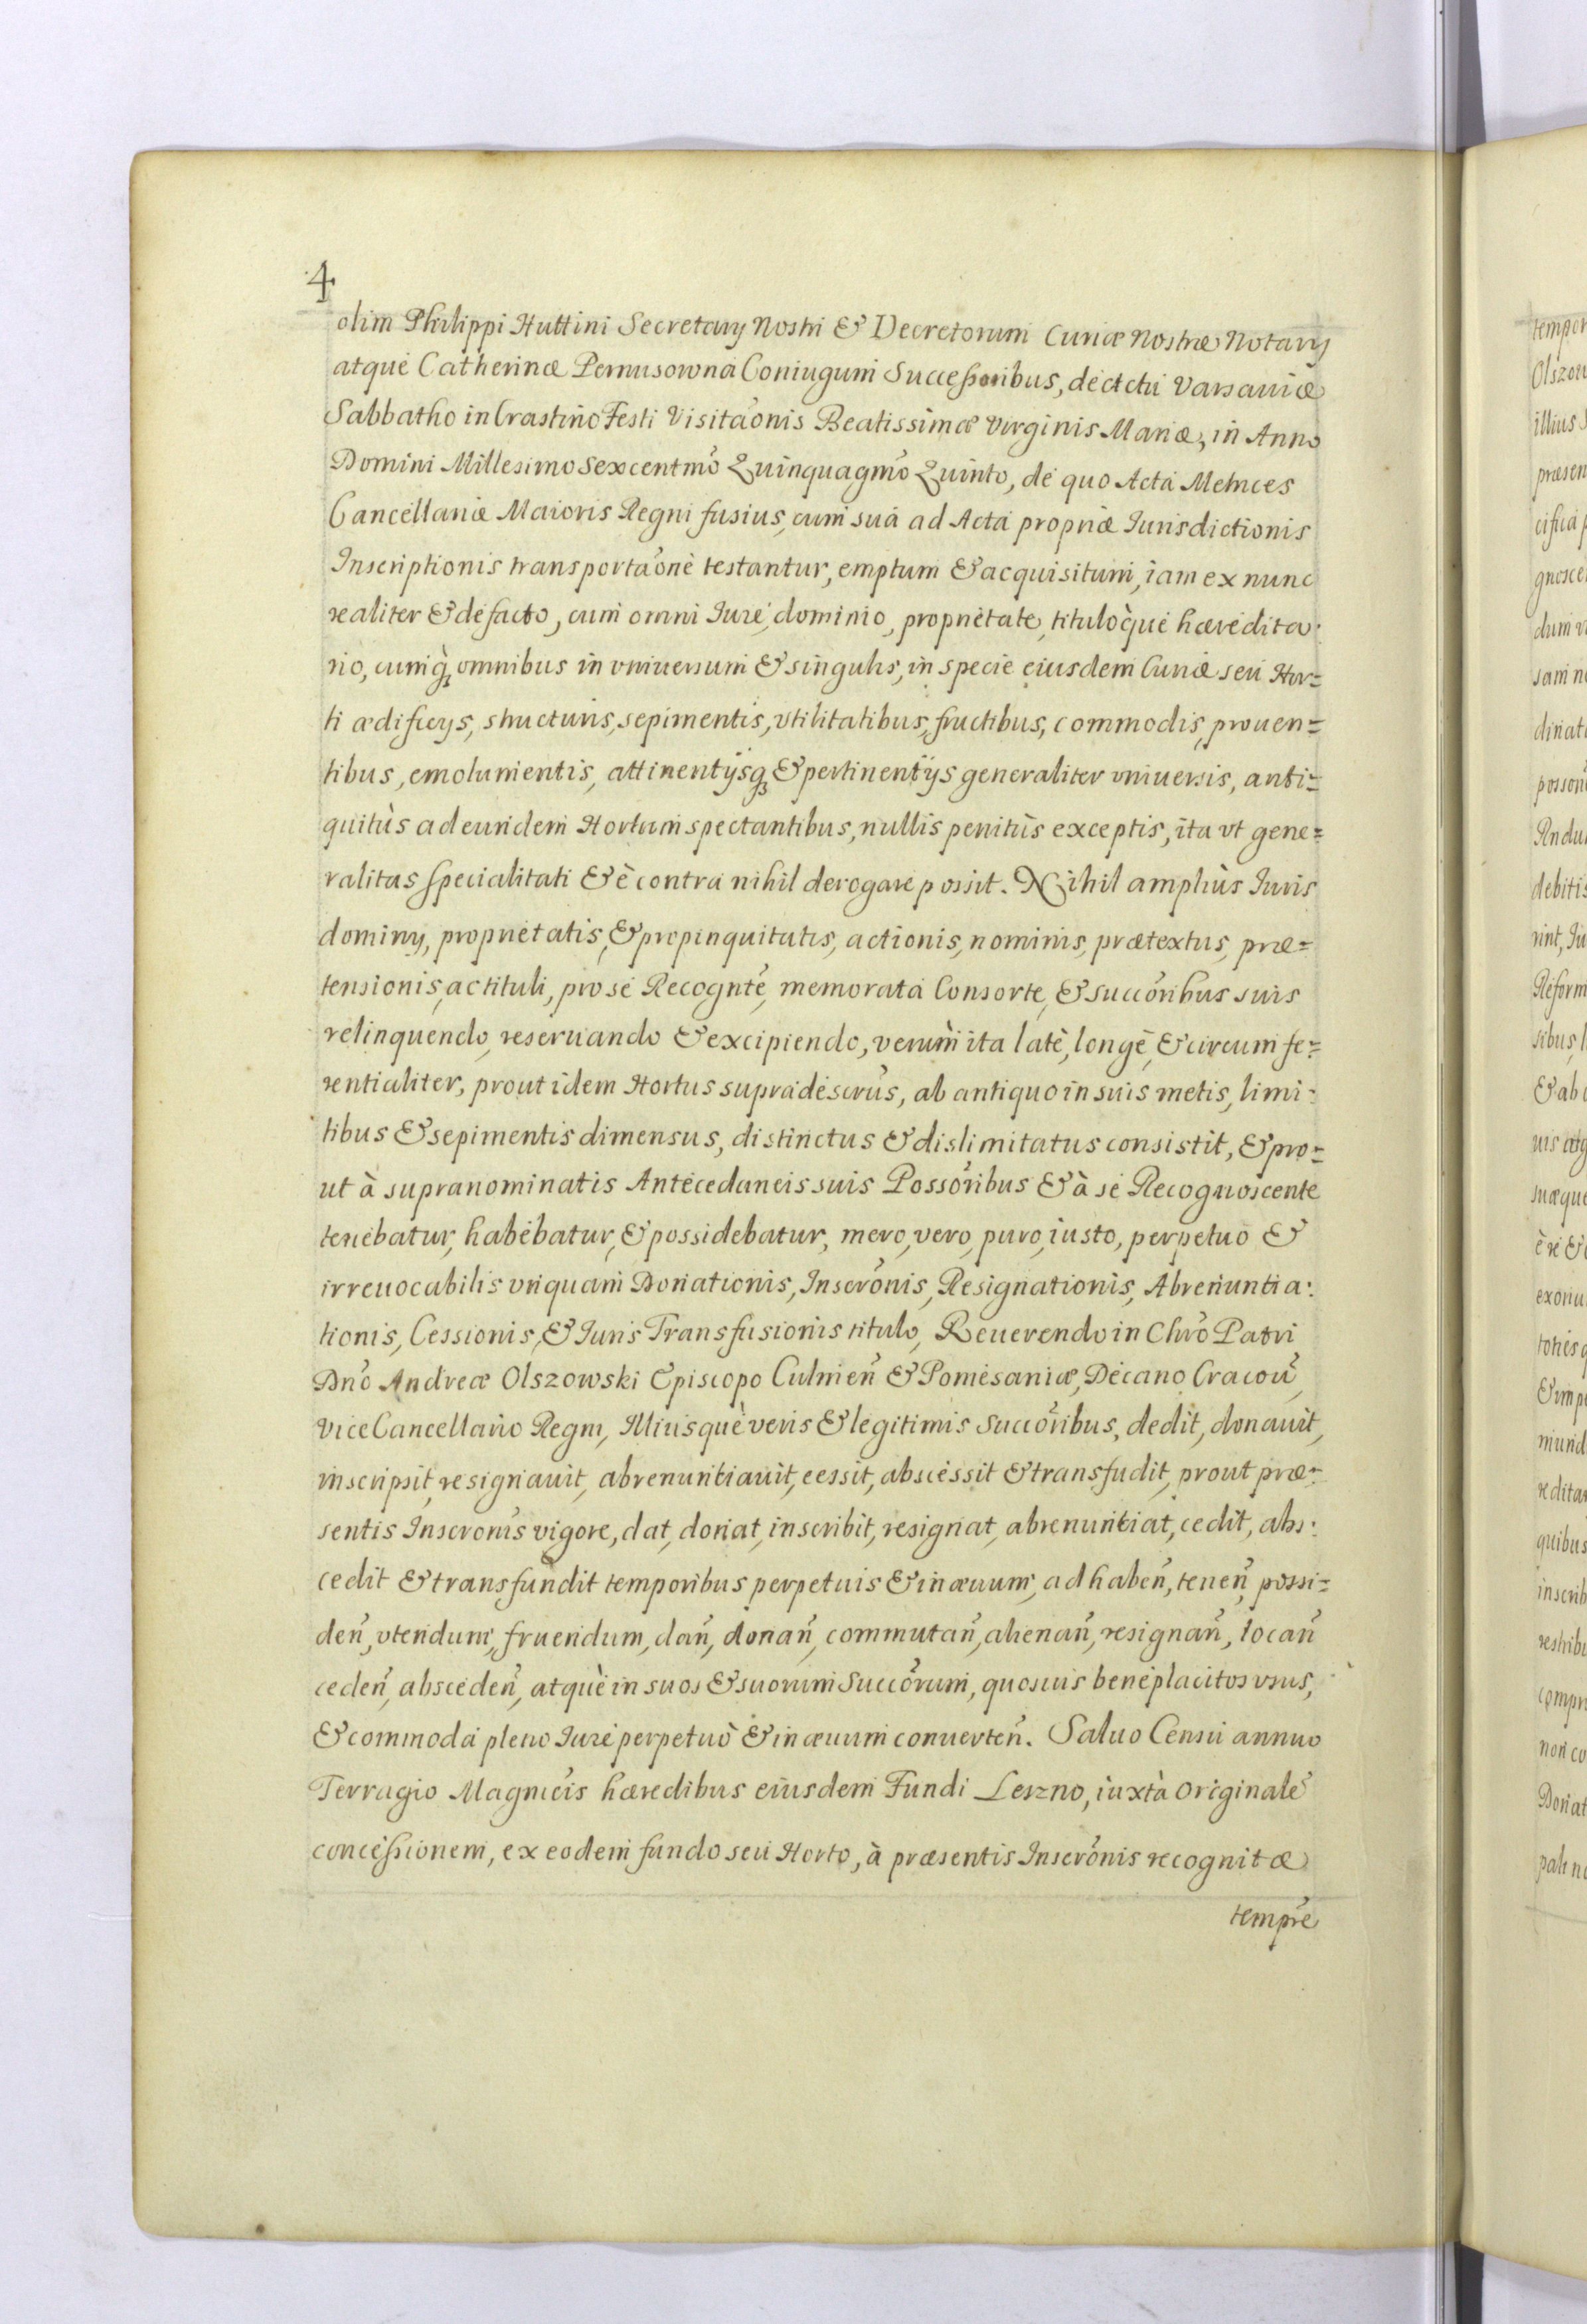 4
olim Philippi Huttini Secretarij Nostri & Decretorum Curiæ Nostræ Notarij
atque Catherinæ Pernusowna Coniugum Successoribus, de & ctū Varsauiæ
Sabbatho in Crastino Festi Visitãonis Beatissimæ Virginis Mariæ, in Anno
Domini Millesimo Sexcentmõ Quinquagmõ Quinto, de quo Acta Metrices
Cancellariæ Maioris Regni fusius, cum sua ad Acta propriæ Iurisdictionis
Inscriptionis transportãone testantur, emptum & acquisitum, iam ex nunc
realiter & de facto, cum omni Iure, dominio, proprietate, tituloq̀ue hæredita-
rio, cumq̀ omnibus in vniuersum & singulis, in specie eiusdem Curiæ seu Hor=
ti ædificijs, structuris, sepimentis, vtilitatibus, fructibus, commodis, prouen=
tibus, emolumentis, attinentijsq & pertinentijs generaliter vniuersis, anti=
quitùs ad eundem Hortum spectantibus, nullis penitùs exceptis, ita vt gene=
ralitas specialitati & è contra nihil derogare possit. Nihil ampliùs Iuris
dominij, proprietatis, & propinquitatis, actionis, nominis, prætextus, præ=
tensionis, ac tituli, pro se Recogntẽ, memorata Consorte, & succõribus suis
relinquendo, reseruando & excipiendo, verùm ita latè, longè, & circumfe=
rentialiter, prout idem Hortus supradescrũs, ab antiquo in suis metis, limi-
tibus & sepimentis dimensus, distinctus & dislimitatus consistit, & pro=
ut à supranominatis Antecedaneis suis Possõribus & à se Recognoscente
tenebatur, habebatur, & possidebatur, mero, vero, puro, iusto, perpetuo &
irreuocabilis vnquam Donationis, Inscrõnis, Resignationis, Abrenuntia-
tionis, Cessionis, & Iuris Transfusionis titulo, Reuerendo in Chrõ Patri
Dnõ Andreæ Olszowski Episcopo Culmeñ & Pomesaniæ, Decano Cracoũ,
ViceCancellario Regni, Illiusquè veris & legitimis Succõribus, dedit, donauit,
inscripsit, resignauit, abrenuntiauit, cessit, abscessit & transfudit, prout præ-
sentis Inscronĩs vigore, dat, donat, inscribit, resignat, abrenuntiat, cedit, abs-
cedit & transfundit temporibus perpetuis & in æuum, ad habeñ, teneñ, possi=
deñ, vtendum, fruendum, dañ, donañ, commutañ, alienañ, resignañ, locañ
cedeñ, abscedeñ, atquè in suos & suorum Succõrum, quosuis beneplacitos vsus,
& commoda pleno Iure perpetuò & in æuum conuerteñ. Saluo Censu annuo
Terragio Magnicĩs hæredibus eiusdem Fundi Leszno, iuxtà originalẽ
concessionem, ex eodem fundo seu Horto, à præsentis Inscrõnis recognitæ
temprẽ